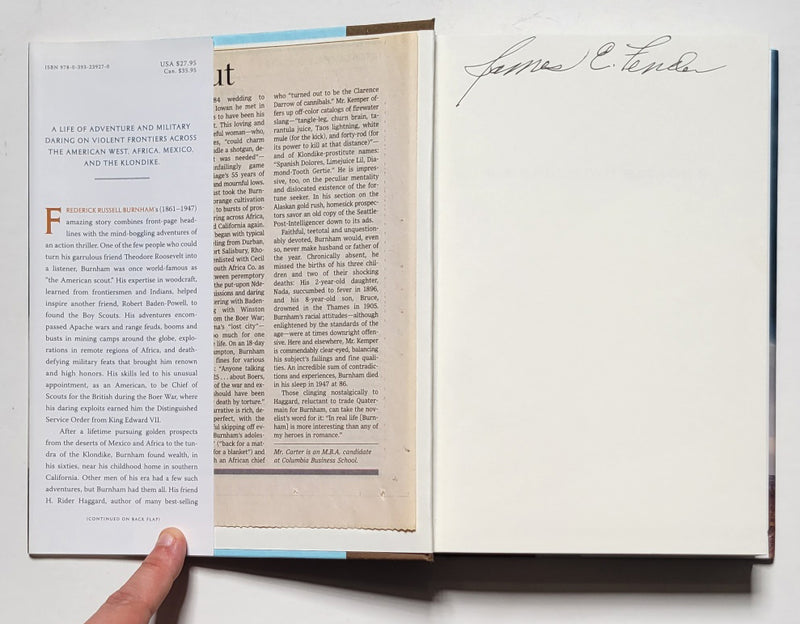 ISBN 978-0-393-23927-0
USA $27.95
Can. $35.95
A LIFE OF ADVENTURE AND MILITARY
DARING ON VIOLENT FRONTIERS ACROSS
THE AMERICAN WEST, AFRICA, MEXICO,
AND THE KLONDIKE.
FREDERICK RUSSELL BURNHAM's (1861–1947)
amazing story combines front-page head-
lines with the mind-boggling adventures of
an action thriller. One of the few people who could
turn his garrulous friend Theodore Roosevelt into
a listener, Burnham was once world-famous as
"the American scout." His expertise in woodcraft,
learned from frontiersmen and Indians, helped
inspire another friend, Robert Baden-Powell, to
found the Boy Scouts. His adventures encom-
passed Apache wars and range feuds, booms and
busts in mining camps around the globe, explo-
rations in remote regions of Africa, and death-
defying military feats that brought him renown
and high honors. His skills led to his unusual
appointment, as an American, to be Chief of
Scouts for the British during the Boer War, where
his daring exploits earned him the Distinguished
Service Order from King Edward VII.
After a lifetime pursuing golden prospects
from the deserts of Mexico and Africa to the tun-
dra of the Klondike, Burnham found wealth, in
his sixties, near his childhood home in southern
California. Other men of his era had a few such
adventures, but Burnham had them all. His friend
H. Rider Haggard, author of many best-selling
(CONTINUED ON BACK FLAP)
ut
84 wedding to
Iowan he met in
s to have been his
t. This loving and
eful woman—who,
es, "could charm
dle a shotgun, de-
t was needed"—
nfailingly game
age's 55 years of
nd mournful lows.
ust took the Burn-
orange cultivation
to bursts of pros-
ring across Africa,
d California again.
began with typical
ling from Durban,
ort Salisbury, Rho-
enlisted with Cecil
outh Africa Co. as
ween peremptory
the put-upon Nde-
issions and daring
ering with Baden-
g with Winston
om the Boer War;
na's "lost city"—
oo much for one
life. On an 18-day
mpton, Burnham
fines for various
: "Anyone talking
25 . . . about Boers,
of the war and ex-
should have been
death by torture."
arrative is rich, de-
perfect, with the
ul skipping off ev-
Burnham's adoles-
" ("back for a mat-
for a blanket") and
h an African chief
who "turned out to be the Clarence
Darrow of cannibals." Mr. Kemper of-
fers up off-color catalogs of firewater
slang—"tangle-leg, churn brain, ta-
rantula juice, Taos lightning, white
mule (for the kick), and forty-rod (for
its power to kill at that distance)"—
and of Klondike-prostitute names:
"Spanish Dolores, Limejuice Lil, Dia-
mond-Tooth Gertie." He is impres-
sive, too, on the peculiar mentality
and dislocated existence of the for-
tune seeker. In his section on the
Alaskan gold rush, homesick prospec-
tors savor an old copy of the Seattle
Post-Intelligencer down to its ads.
Faithful, teetotal and unquestion-
ably devoted, Burnham would, even
so, never make husband or father of
the year. Chronically absent, he
missed the births of his three chil-
dren and two of their shocking
deaths: His 2-year-old daughter,
Nada, succumbed to fever in 1896,
and his 8-year-old son, Bruce,
drowned in the Thames in 1905.
Burnham's racial attitudes—although
enlightened by the standards of the
age—were at times downright offen-
sive. Here and elsewhere, Mr. Kemper
is commendably clear-eyed, balancing
his subject's failings and fine quali-
ties. An incredible sum of contradic-
tions and experiences, Burnham died
in his sleep in 1947 at 86.
Those clinging nostalgically to
Haggard, reluctant to trade Quater-
main for Burnham, can take the nov-
elist's word for it: "In real life [Burn-
ham] is more interesting than any of
my heroes in romance."
Mr. Carter is an M.B.A. candidate
at Columbia Business School.
James E. Fender